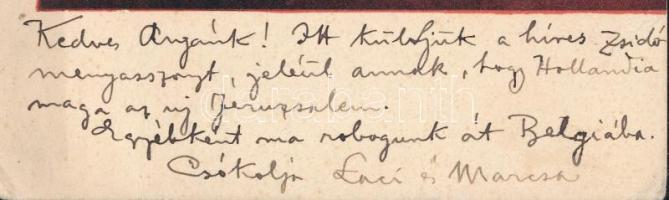 Kedves Anyánk! Itt küldjük a híres Zsidó
menyasszonyt, jeléül annak, hogy Hollandia
maga az új Jeruzsalem.
Egyébként ma robogunk át Belgiába.
Csókolja Laci és Marcsa